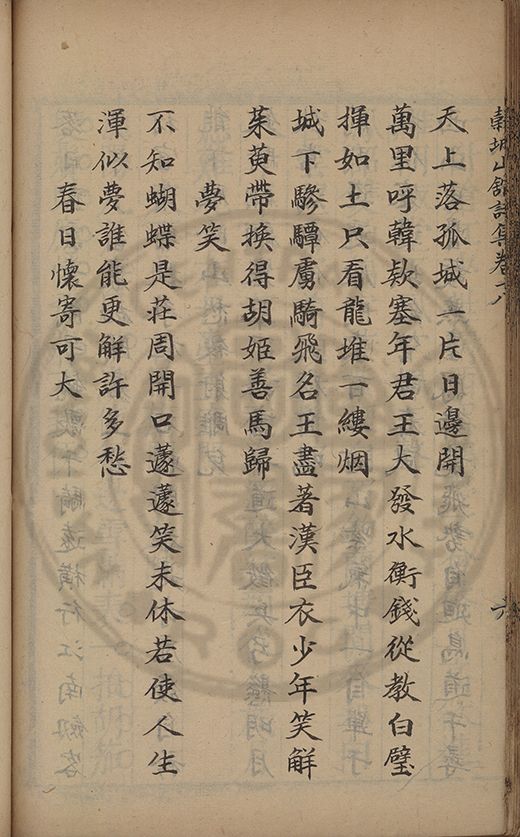 天上落孤城一片日邊開
萬里呼韓欵塞年君王大發水衡錢從教白璧
揮如土只看龍堆一縷烟
城下驂驔虜騎飛名王盡著漢臣衣少年笑解
茱萸帶換得胡姬善馬歸
夢笑
不知蝴蝶是莊周開口蘧蘧笑未休若使人生
渾似夢誰能更解許多愁
春日懷寄可大
六